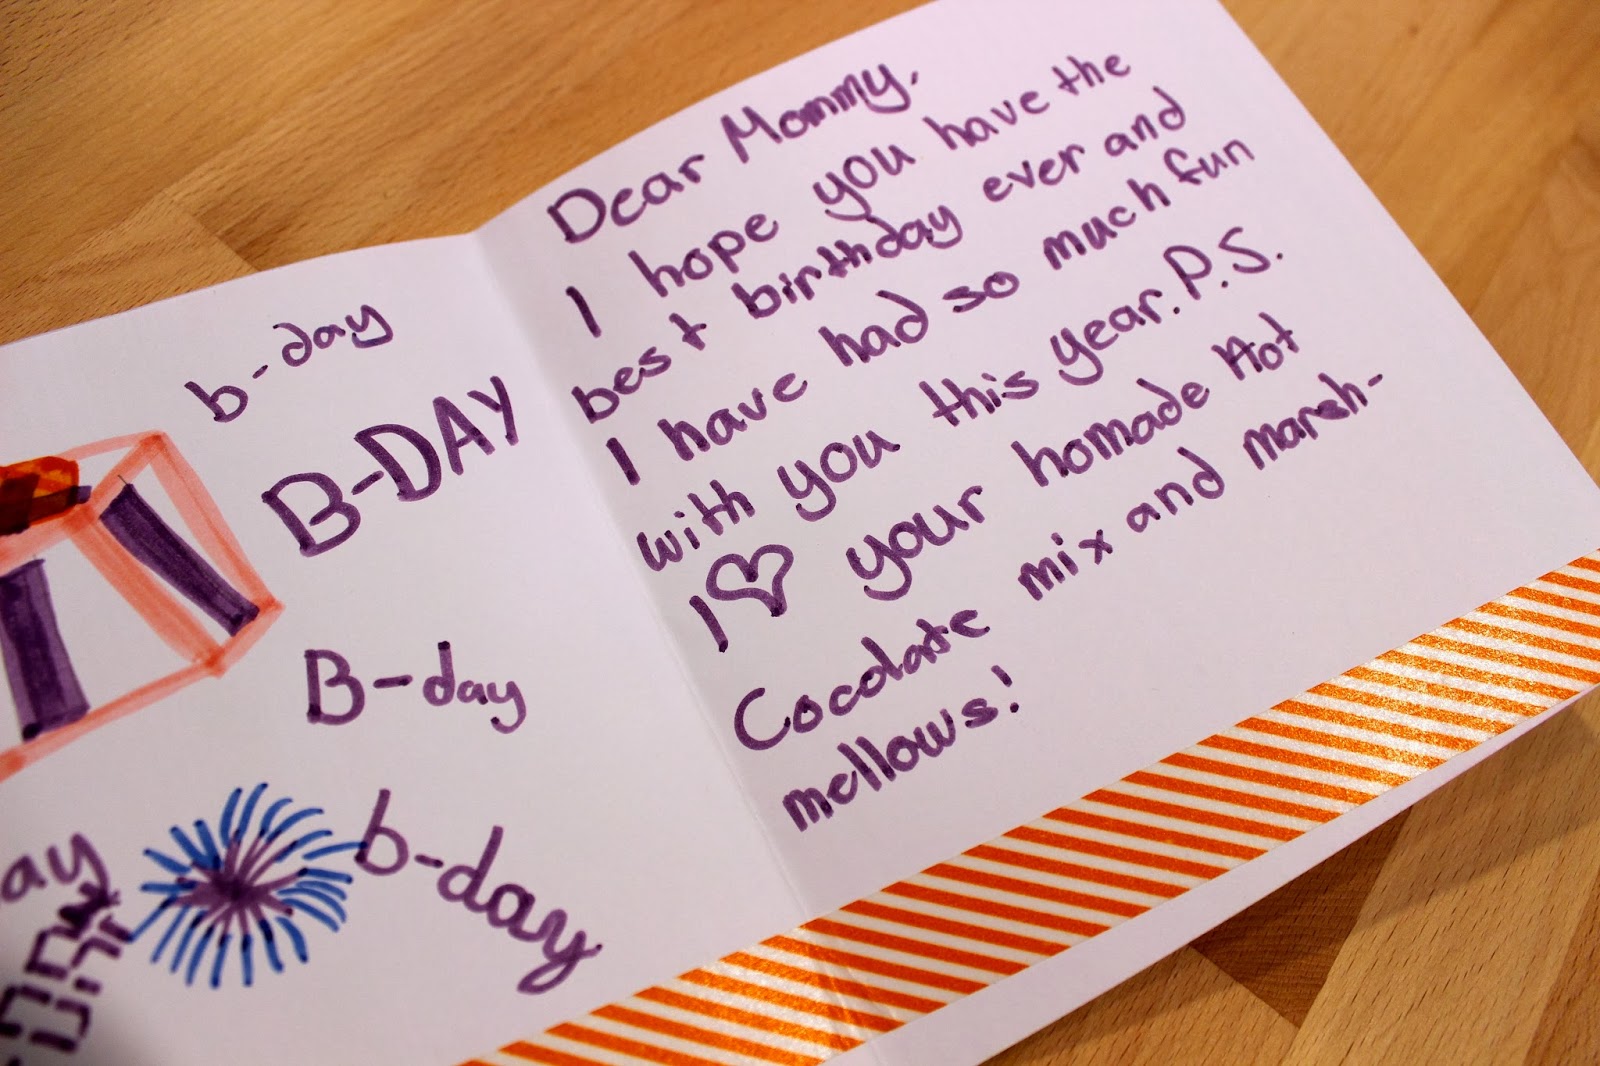 b-day
B-DAY
B-day
ay
b-day
Dear Mommy,
I hope you have the
best birthday ever and
I have had so much fun
with you this year. P.S.
I ♡ your homade Hot
Cocolate mix and marsh-
mellows!